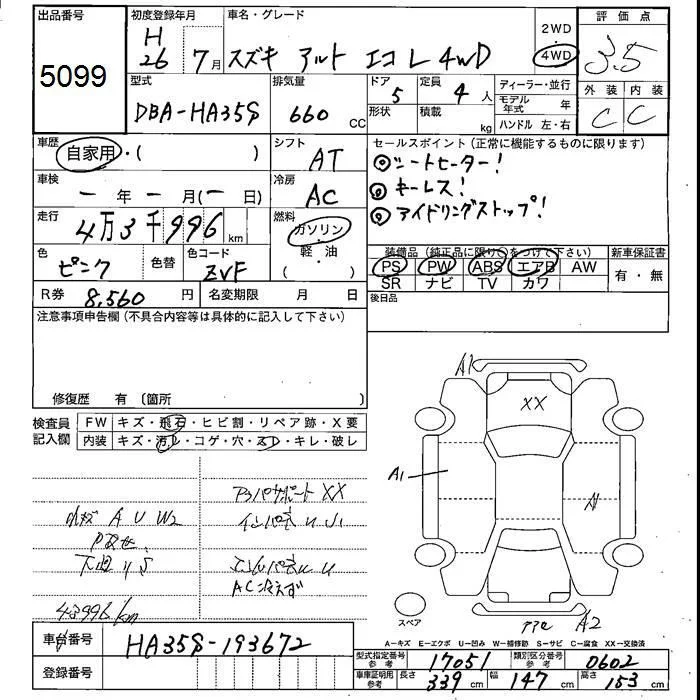 出品番号 初度登録年月 車名・グレード 2WD 評価点
5099 H26 7月 スズキ アルト エコL 4WD 4WD 3.5
型式 排気量 ドア 定員 ディーラー・並行 外装 内装
DBA-HA35S 660 CC 5 4人 モデル年式 年 C C
形状 積載 kg ハンドル 左・右
車歴 シフト セールスポイント (正常に機能するものに限ります)
自家用・( ) AT ◎シートヒーター!
車検 冷房 ◎キーレス!
一年一月(一日) AC ◎アイドリングストップ!
走行 燃料
4万3千996km ガソリン・軽・油
色 色替 色コード ( ) 装備品 (純正品に限り○をつけて下さい) 新車保証書
ピンク ZVF PS PW ABS エアB AW 有・無
SR ナビ TV カワ
R券 8,560円 名変期限 月 日 後日品
注意事項申告欄(不具合内容等は具体的に記入して下さい)
修復歴 有 (箇所 )
検査員記入欄 FW キズ・飛石・ヒビ割・リペア跡・X要
内装 キズ・汚レ・コゲ・穴・スレ・キレ・破レ
A1
XX
A1
A
A2
スペア
XX
A U W2
インパネ U
AC冷えず
43996km
A-キズ E-エクボ U-凹み W-補修跡 S-サビ C-腐食 XX-交換済
車台番号 HA35S-193672 型式指定番号 参考 17051 類別区分番号 参考 0602
登録番号 車庫証明用 参考 長さ 339cm 幅 147cm 高さ 153cm